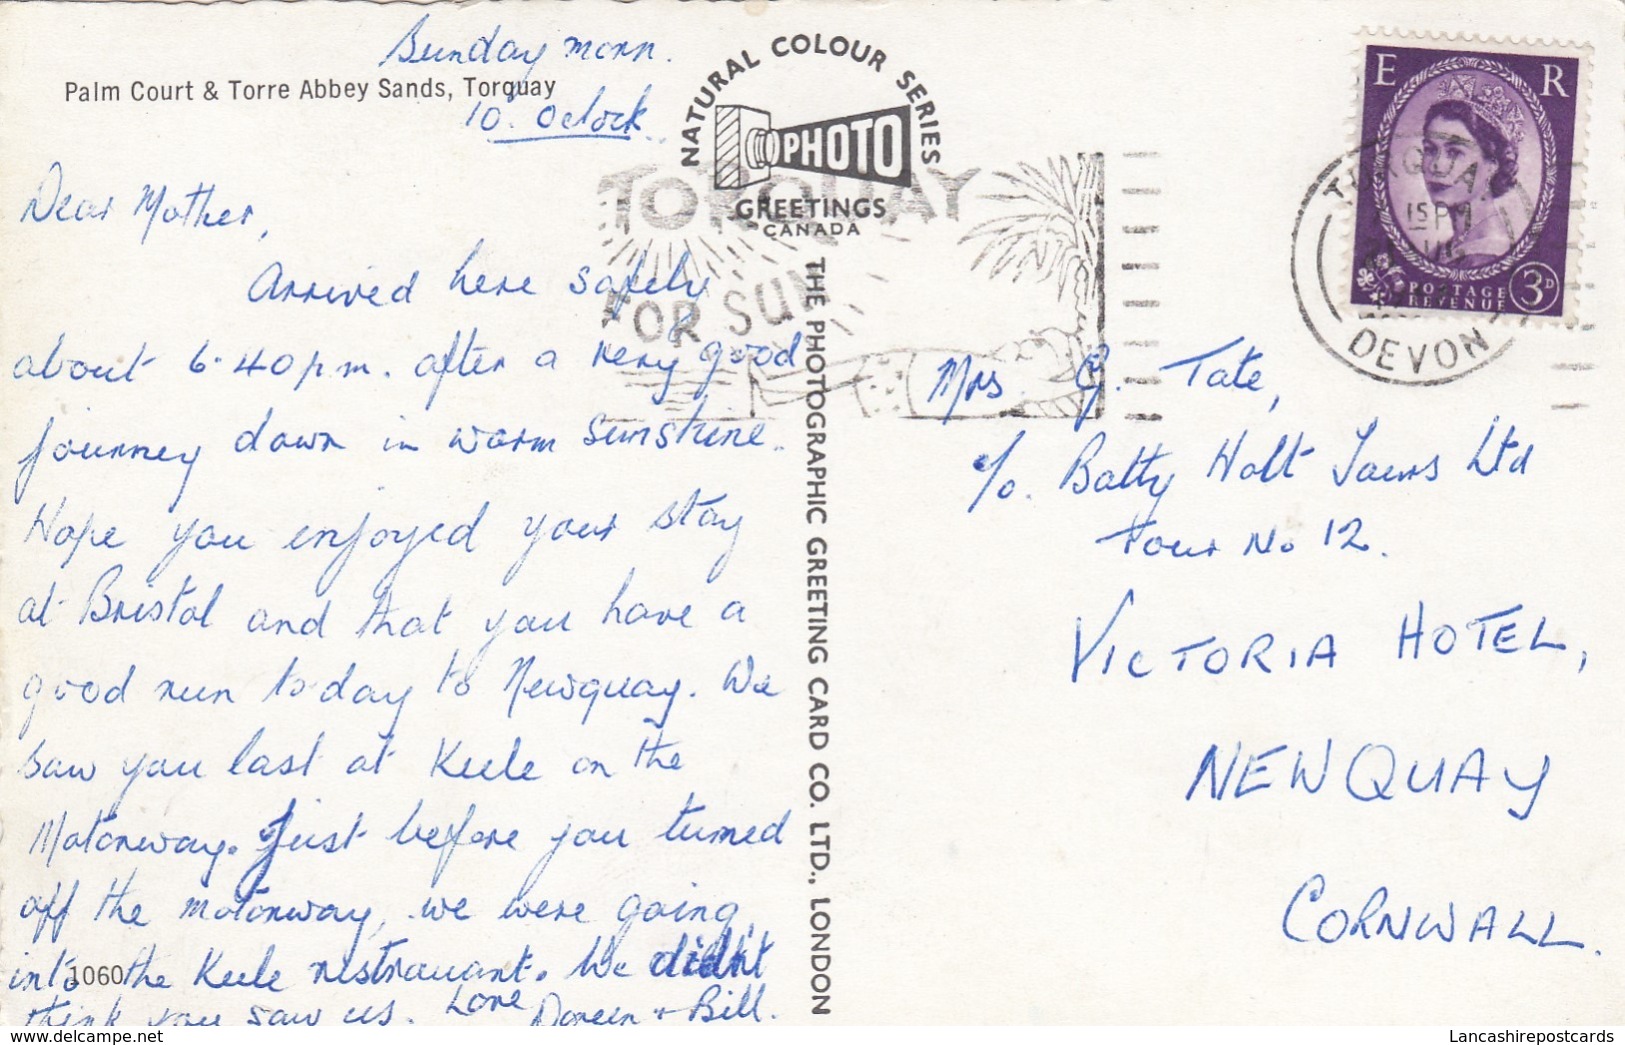 Sunday morn.
Palm Court & Torre Abbey Sands, Torquay
10. Oclock.
Dear Mother,
Arrived here safely
about 6.40pm. after a very good
journey down in warm sunshine.
Hope you enjoyed your stay
at Bristol and that you have a
good run to-day to Newquay. We
saw you last at Keele on the
Motorway. Just before you turned
off the motorway, we were going
into the Keele restrauant. We didnt
think you saw us. Love Doreen + Bill.
1060
NATURAL COLOUR SERIES
PHOTO
GREETINGS
CANADA
THE PHOTOGRAPHIC GREETING CARD CO. LTD., LONDON
TORQUAY
FOR SUN
E R
POSTAGE
REVENUE
3D
TORQUAY
15PM
DEVON
Mrs. G. Tate,
c/o. Batty Holt Tours Ltd
Tour No 12.
VICTORIA HOTEL,
NEWQUAY
CORNWALL.
Lancashirepostcards